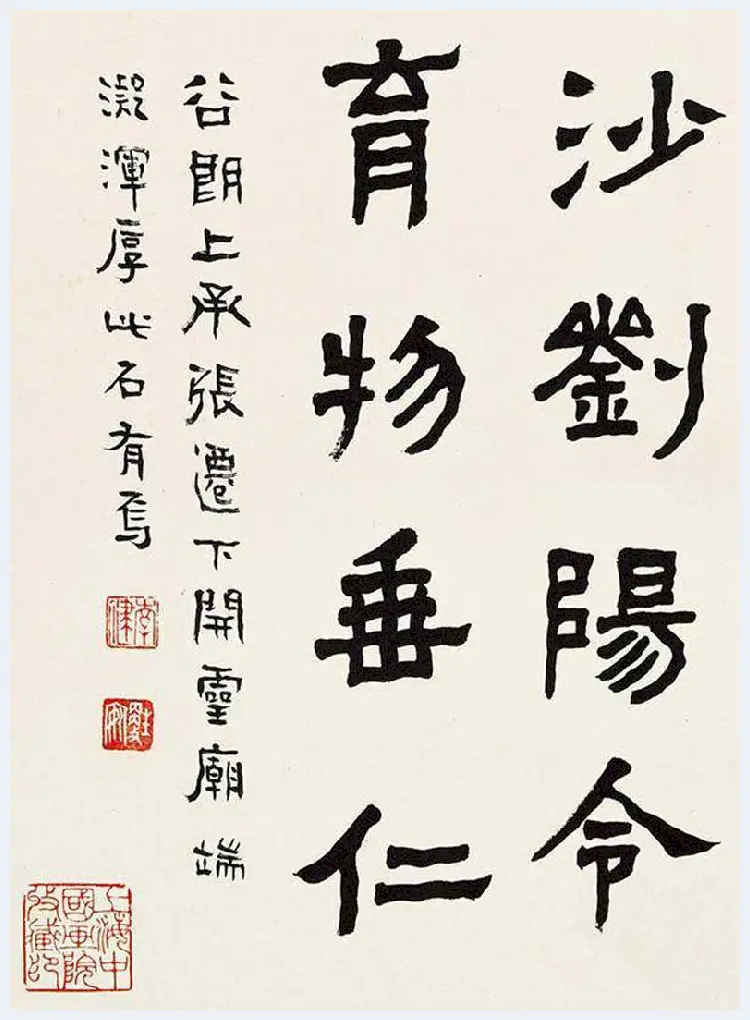 沙劉陽令
育物垂仁
谷朗上承張遷下開靈廟端
凝渾厚此石有焉
李健
上海中
國画院
收藏印